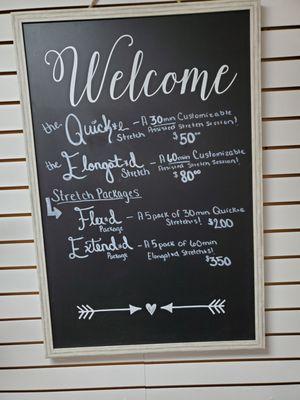 Welcome
the Quick★d Stretch - A 30min Customizable Assisted Stretch Session! $50⁰⁰
the Elongat★d Stretch - A 60min Customizable Assisted Stretch Session! $80⁰⁰
Stretch Packages
Flex★d Package - A 5 pack of 30min Quick★d Stretch★s! $200
Extend★d Package - A 5 pack of 60min Elongat★d Stretch★s! $350